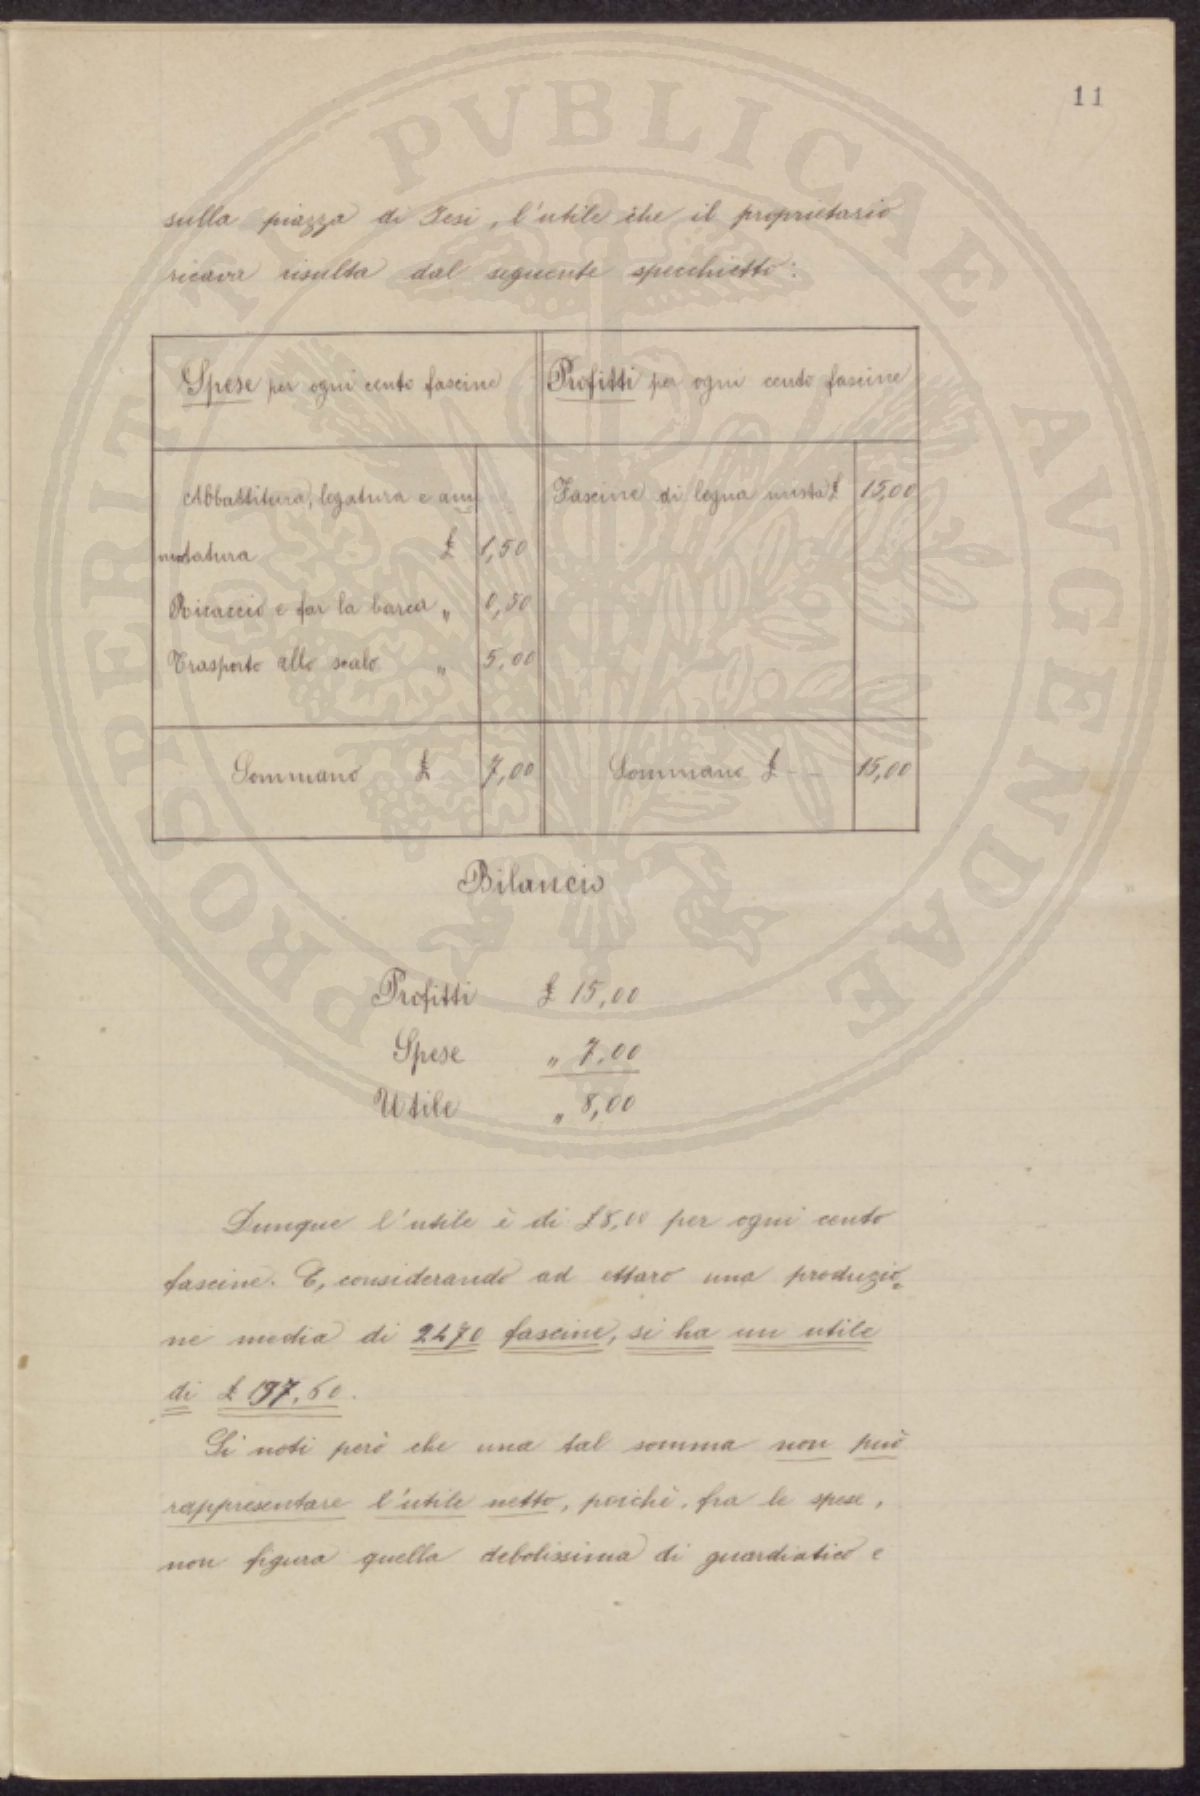 11
sulla piazza di Jesi, l'utile che il proprietario
ricava risulta dal seguente specchietto:
Spese per ogni cento fascine
Profitti per ogni cento fascine
Abbattitura, legatura e am
mutatura £ 1,50
Ricaccio e far la barca " 0,50
Trasporto allo scalo " 5,00
Fascine di legna mista £ 15,00
Sommano £ 7,00
Sommano £ -- 15,00
Bilancio
Profitti £ 15,00
Spese " 7.00
Utile " 8,00
Dunque l'utile è di £ 8,00 per ogni cento
fascine. E, considerando ad ettaro una produzio=
ne media di 2470 fascine, si ha un utile
di £ 197,60.
Si noti però che una tal somma non può
rappresentare l'utile netto, poichè, fra le spese,
non figura quella debolissima di guardiatico e
PROSPERITATI PVBLICAE AVGENDAE